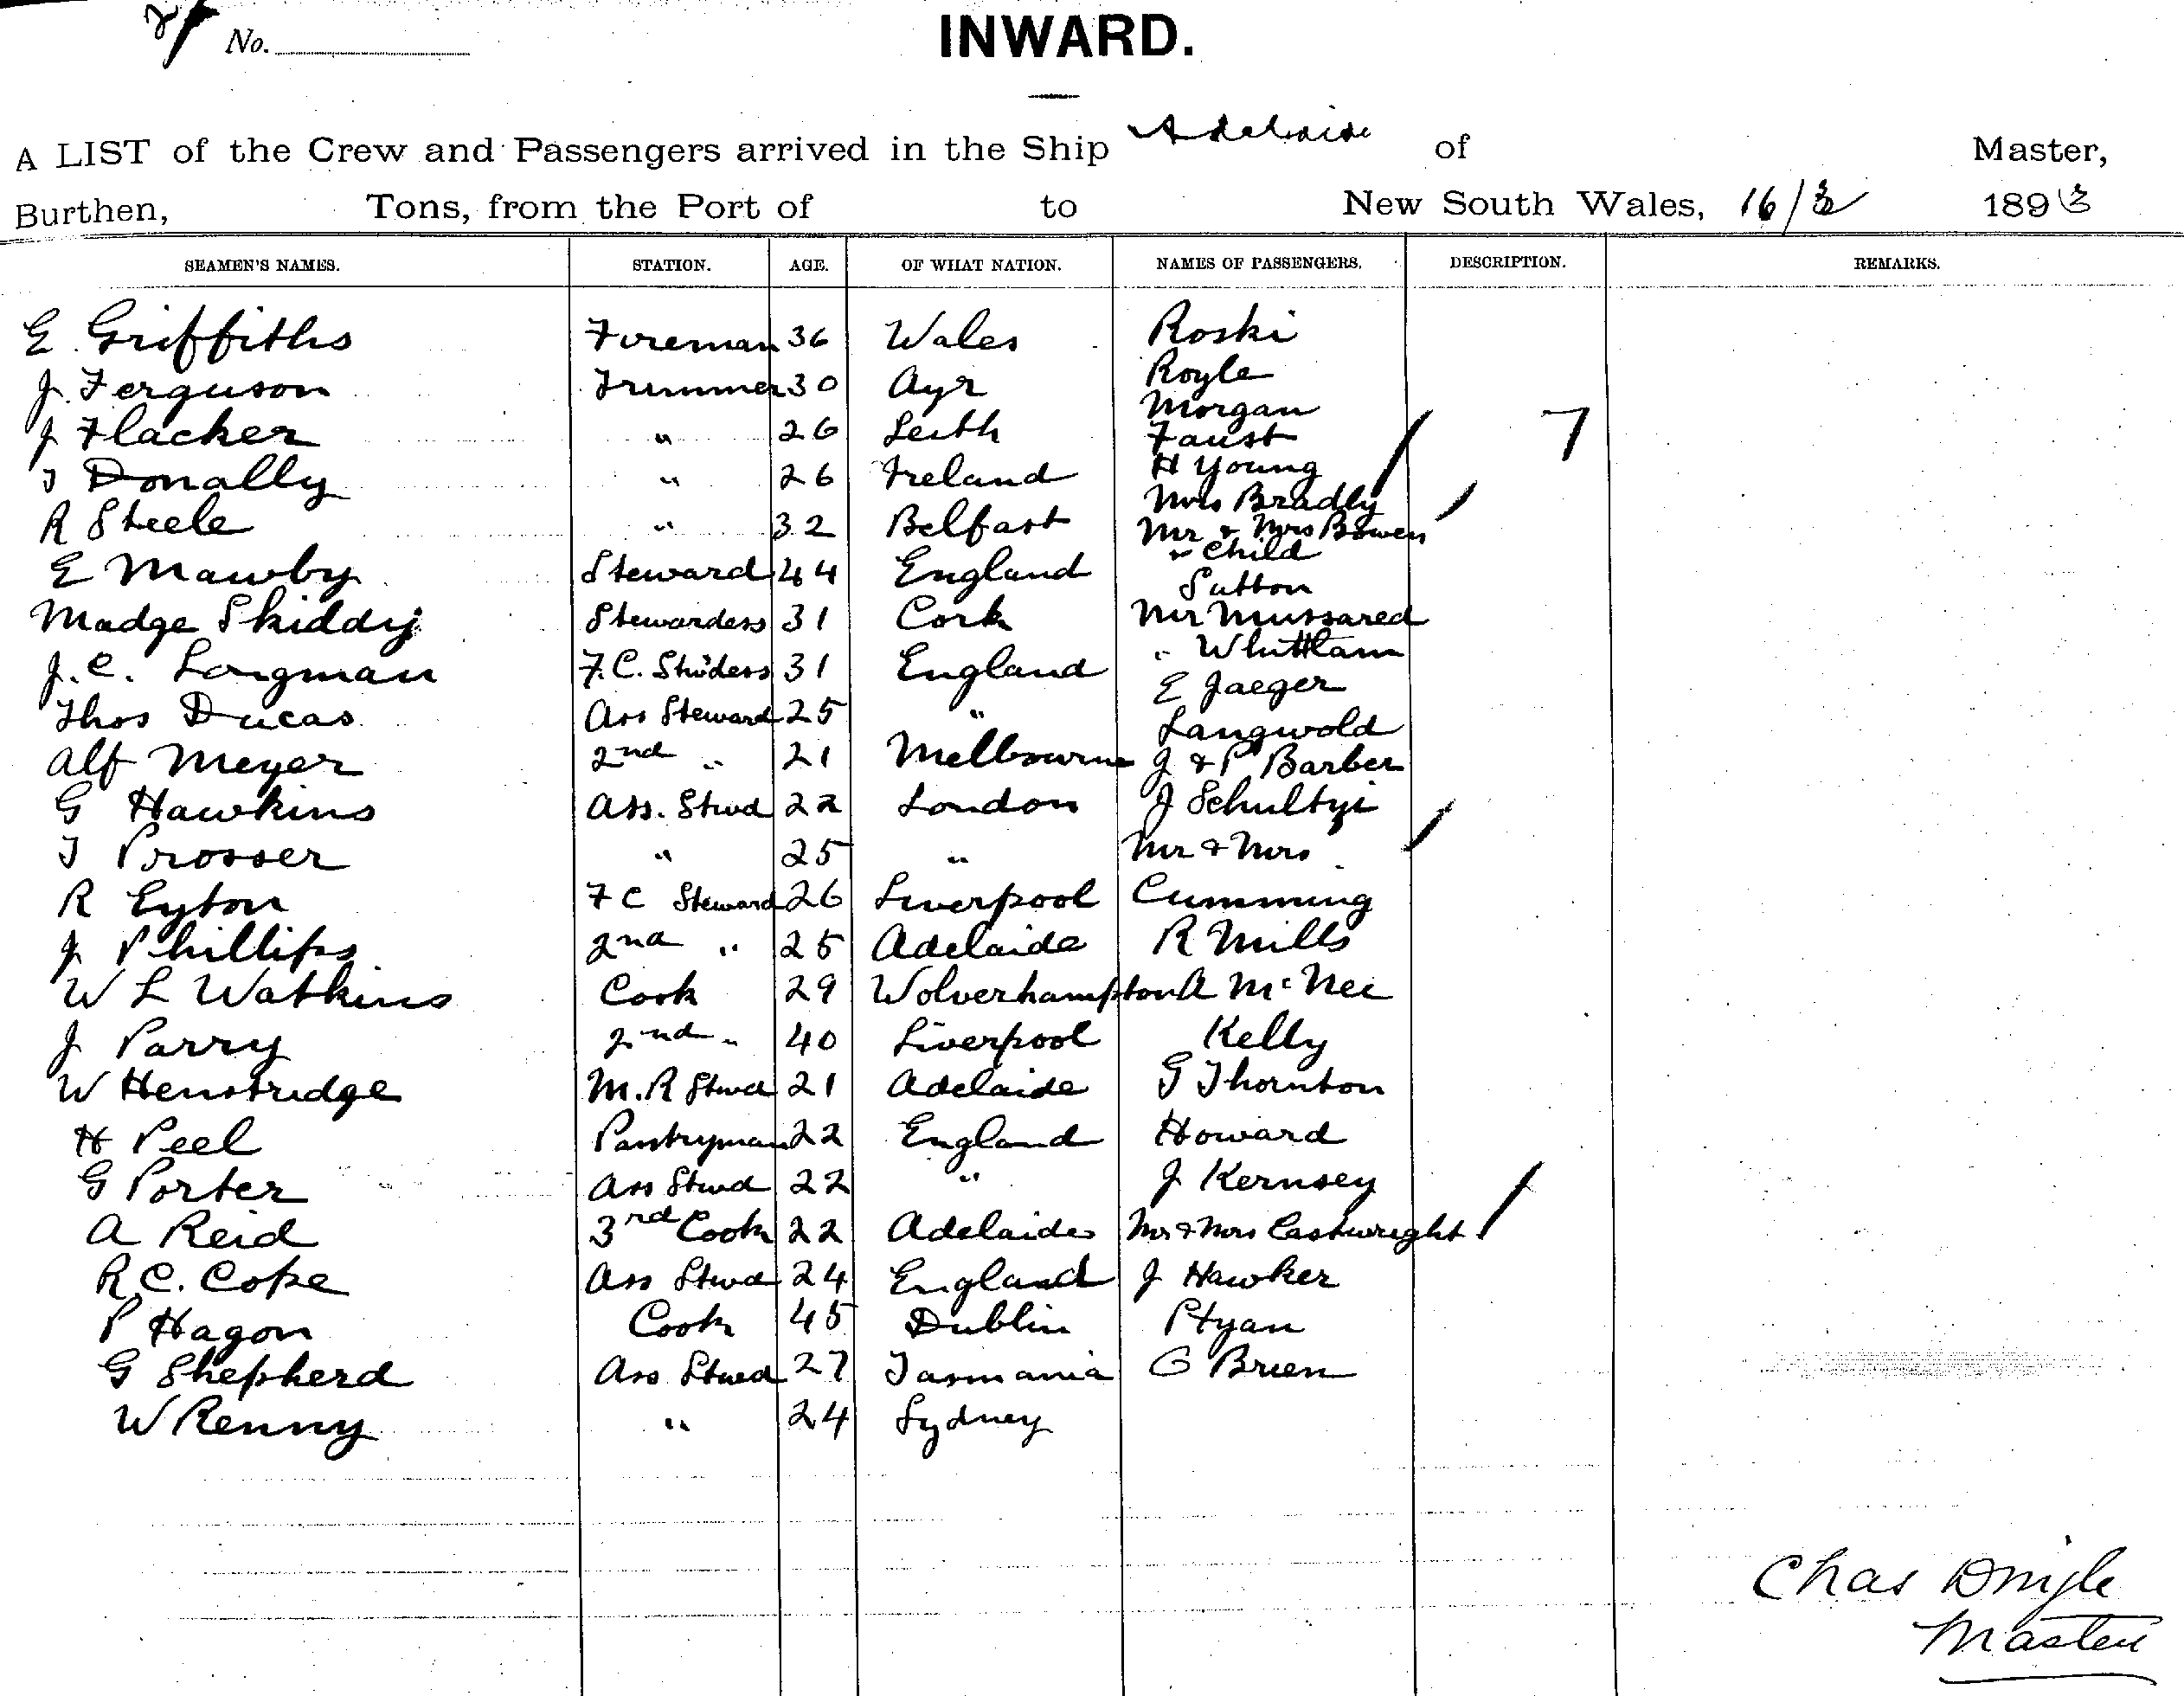 No.
INWARD.
A LIST of the Crew and Passengers arrived in the Ship Adelaide of Master,
Burthen, Tons, from the Port of to New South Wales, 16/3 1893
SEAMEN'S NAMES. STATION. AGE. OF WHAT NATION. NAMES OF PASSENGERS. DESCRIPTION. REMARKS.
E Griffiths Fireman 36 Wales Roski
Royle
J. Ferguson Trimmer 30 Ayr Morgan
J Flacker " 26 Leith Faust
H Young
T Donally " 26 Ireland Mrs Bradly
R Steele " 32 Belfast Mr & Mrs Bowen
& Child
E Mawby Steward 44 England Sutton
Madge Skiddy Stewardess 31 Cork Mr Mussared
J. C. Longman F.C. Stwdess 31 England " Whittlam
E Jaeger
Thos Ducas Ass Steward 25 " Langwold
Alf Meyer 2nd " 21 Melbourne J & P Barber
G Hawkins Ass. Stwd 22 London J Schultzi
T Prosser " 25 " Mr & Mrs
R Eyton F C Steward 26 Liverpool Cumming
J Phillips 2nd " 25 Adelaide R Mills
W L Watkins Cook 29 Wolverhampton A McNee
J Parry 2nd " 40 Liverpool Kelly
W Henstridge M.R Stwd 21 Adelaide G Thornton
H Peel Pantryman 22 England Howard
G Porter Ass Stwd 22 " J Kernsey
A Reid 3rd Cook 22 Adelaide Mr & Mrs Castwright
R.C. Cope Ass Stwd 24 England J Hawker
P Hagon Cook 45 Dublin Ptyan
G Shepherd Ass Stwd 27 Tasmania O Brien
W Renny " 24 Sydney
Chas Dingle
Master